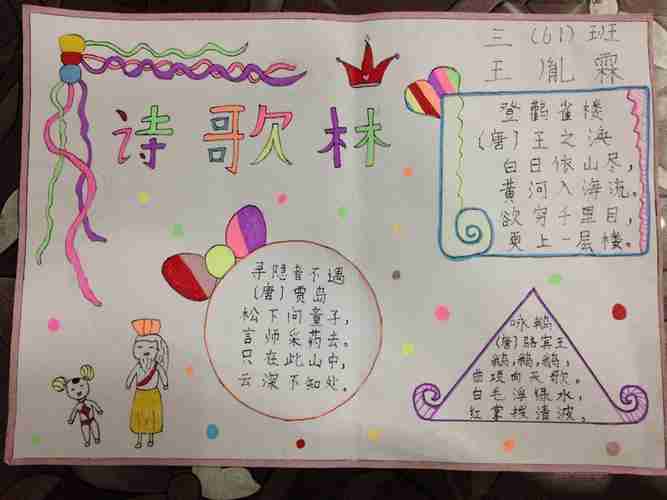 三(61)班
王胤霖
诗歌林
登鹳雀楼
(唐)王之涣
白日依山尽,
黄河入海流。
欲穷千里目,
更上一层楼。
寻隐者不遇
(唐)贾岛
松下问童子,
言师采药去。
只在此山中,
云深不知处。
咏鹅
(唐)骆宾王
鹅,鹅,鹅,
曲项向天歌。
白毛浮绿水,
红掌拨清波。